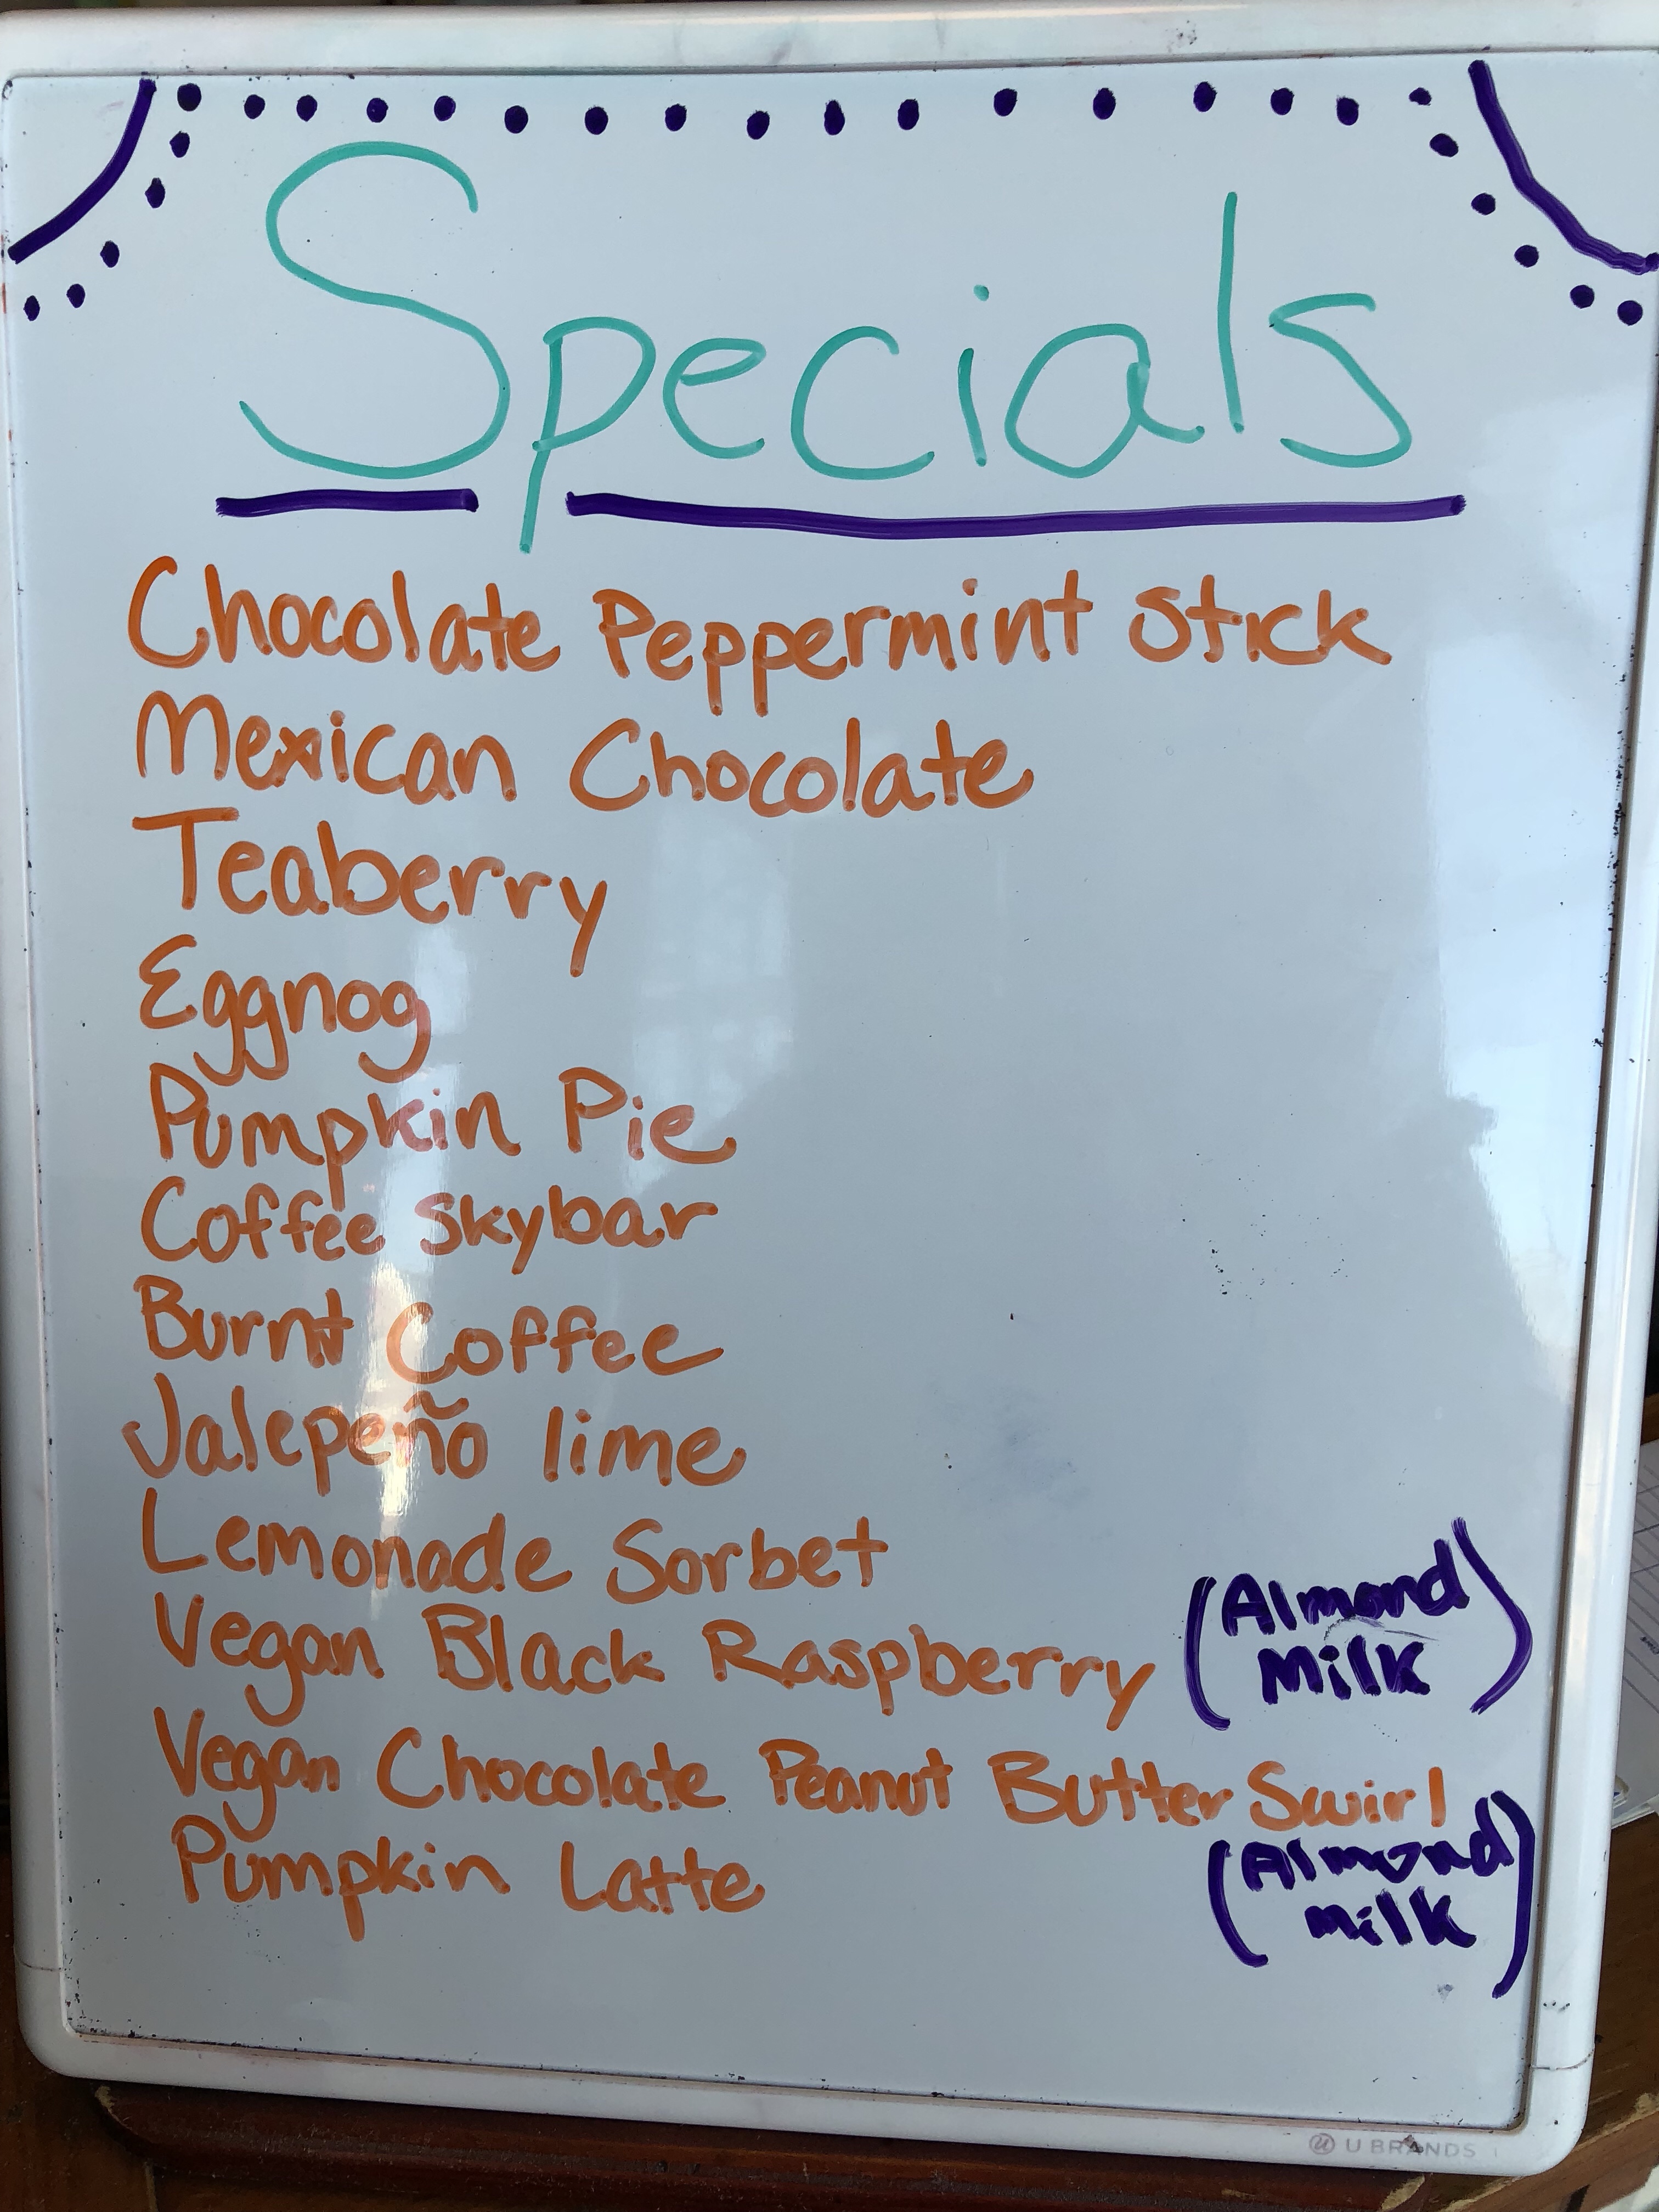 Specials
Chocolate Peppermint Stick
Mexican Chocolate
Teaberry
Eggnog
Pumpkin Pie
Coffee Skybar
Burnt Coffee
Jalepeño lime
Lemonade Sorbet
Vegan Black Raspberry (Almond
Milk)
Vegan Chocolate Peanut Butter Swirl
Pumpkin Latte
(Almond
milk)
U BRANDS